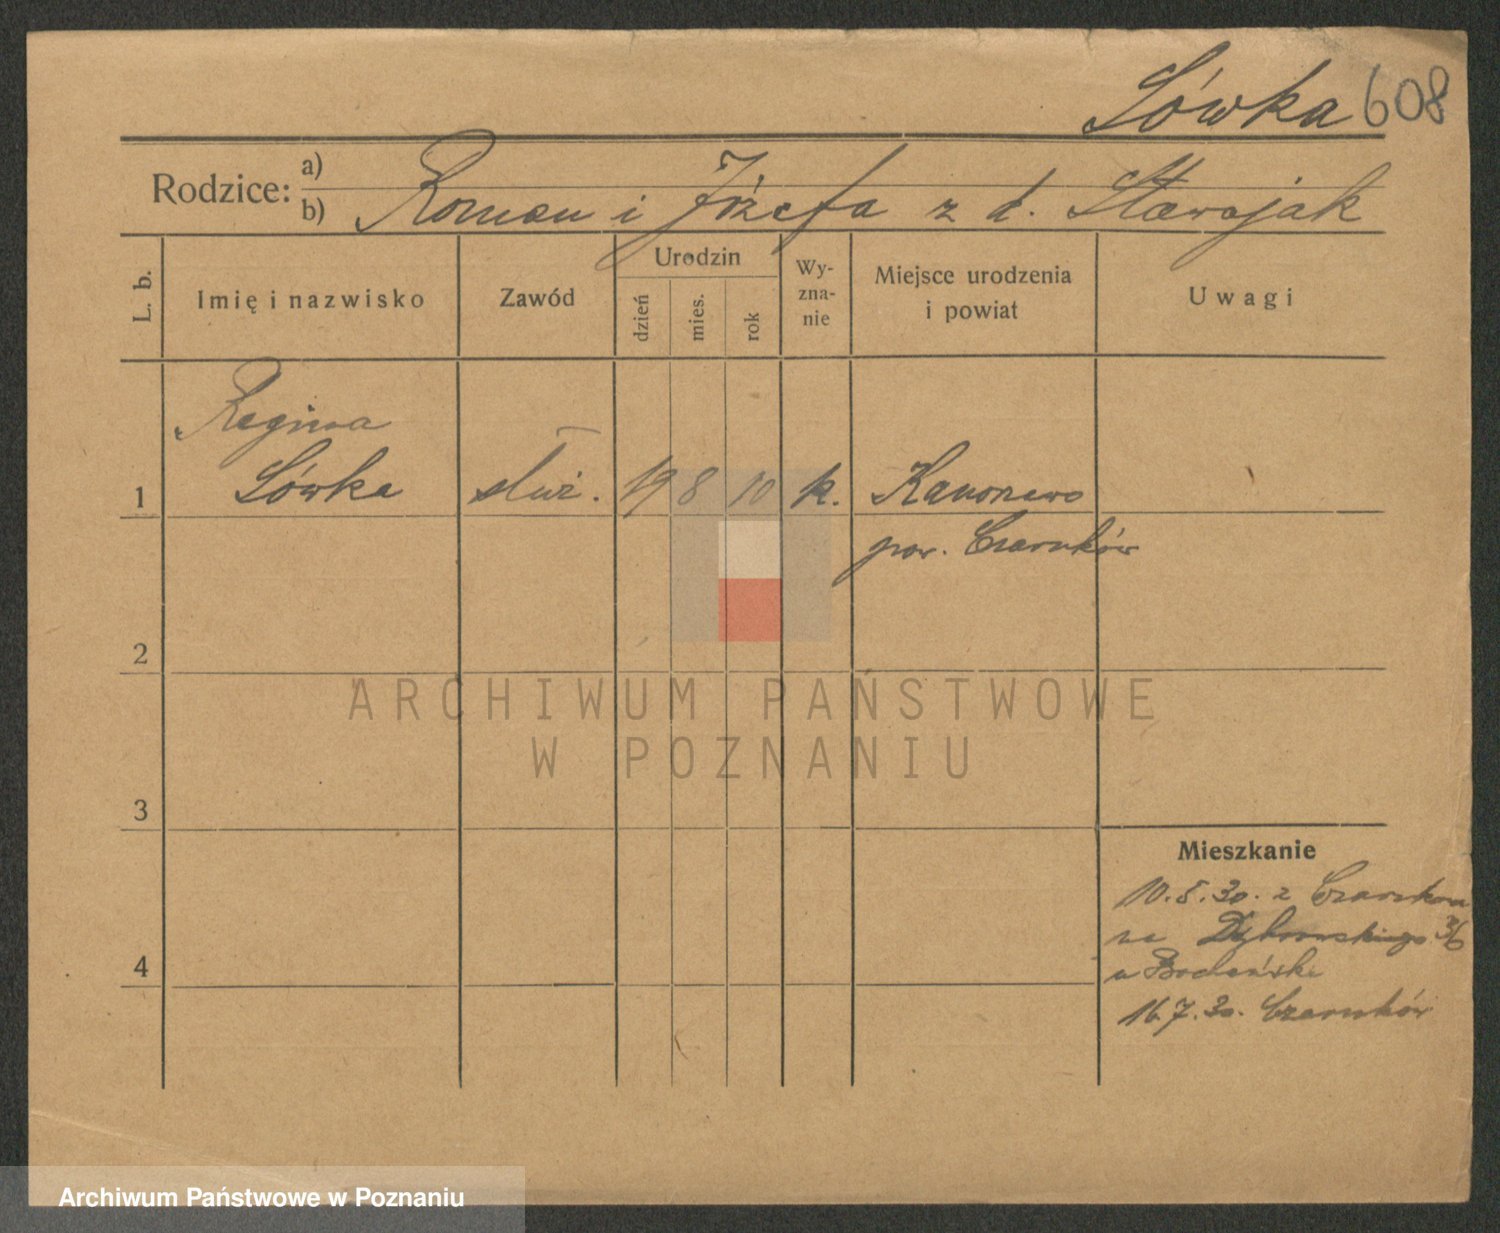 Sówka 608
Rodzice: a)
b) Roman i Józefa z d. Stawojak
L. b.
Imię i nazwisko
Zawód
Urodzin
dzień
mies.
rok
Wy-
zna-
nie
Miejsce urodzenia
i powiat
Uwagi
Regina
1 Sówka służ. 19 8 10 k. Kanonowo
pow. Czarnków
2
ARCHIWUM PAŃSTWOWE
W POZNANIU
3
Mieszkanie
10.5.30. z Czarnkowa
na Dąbrowskiego 36
4
u
16.7.30. Czarnków
Archiwum Państwowe w Poznaniu